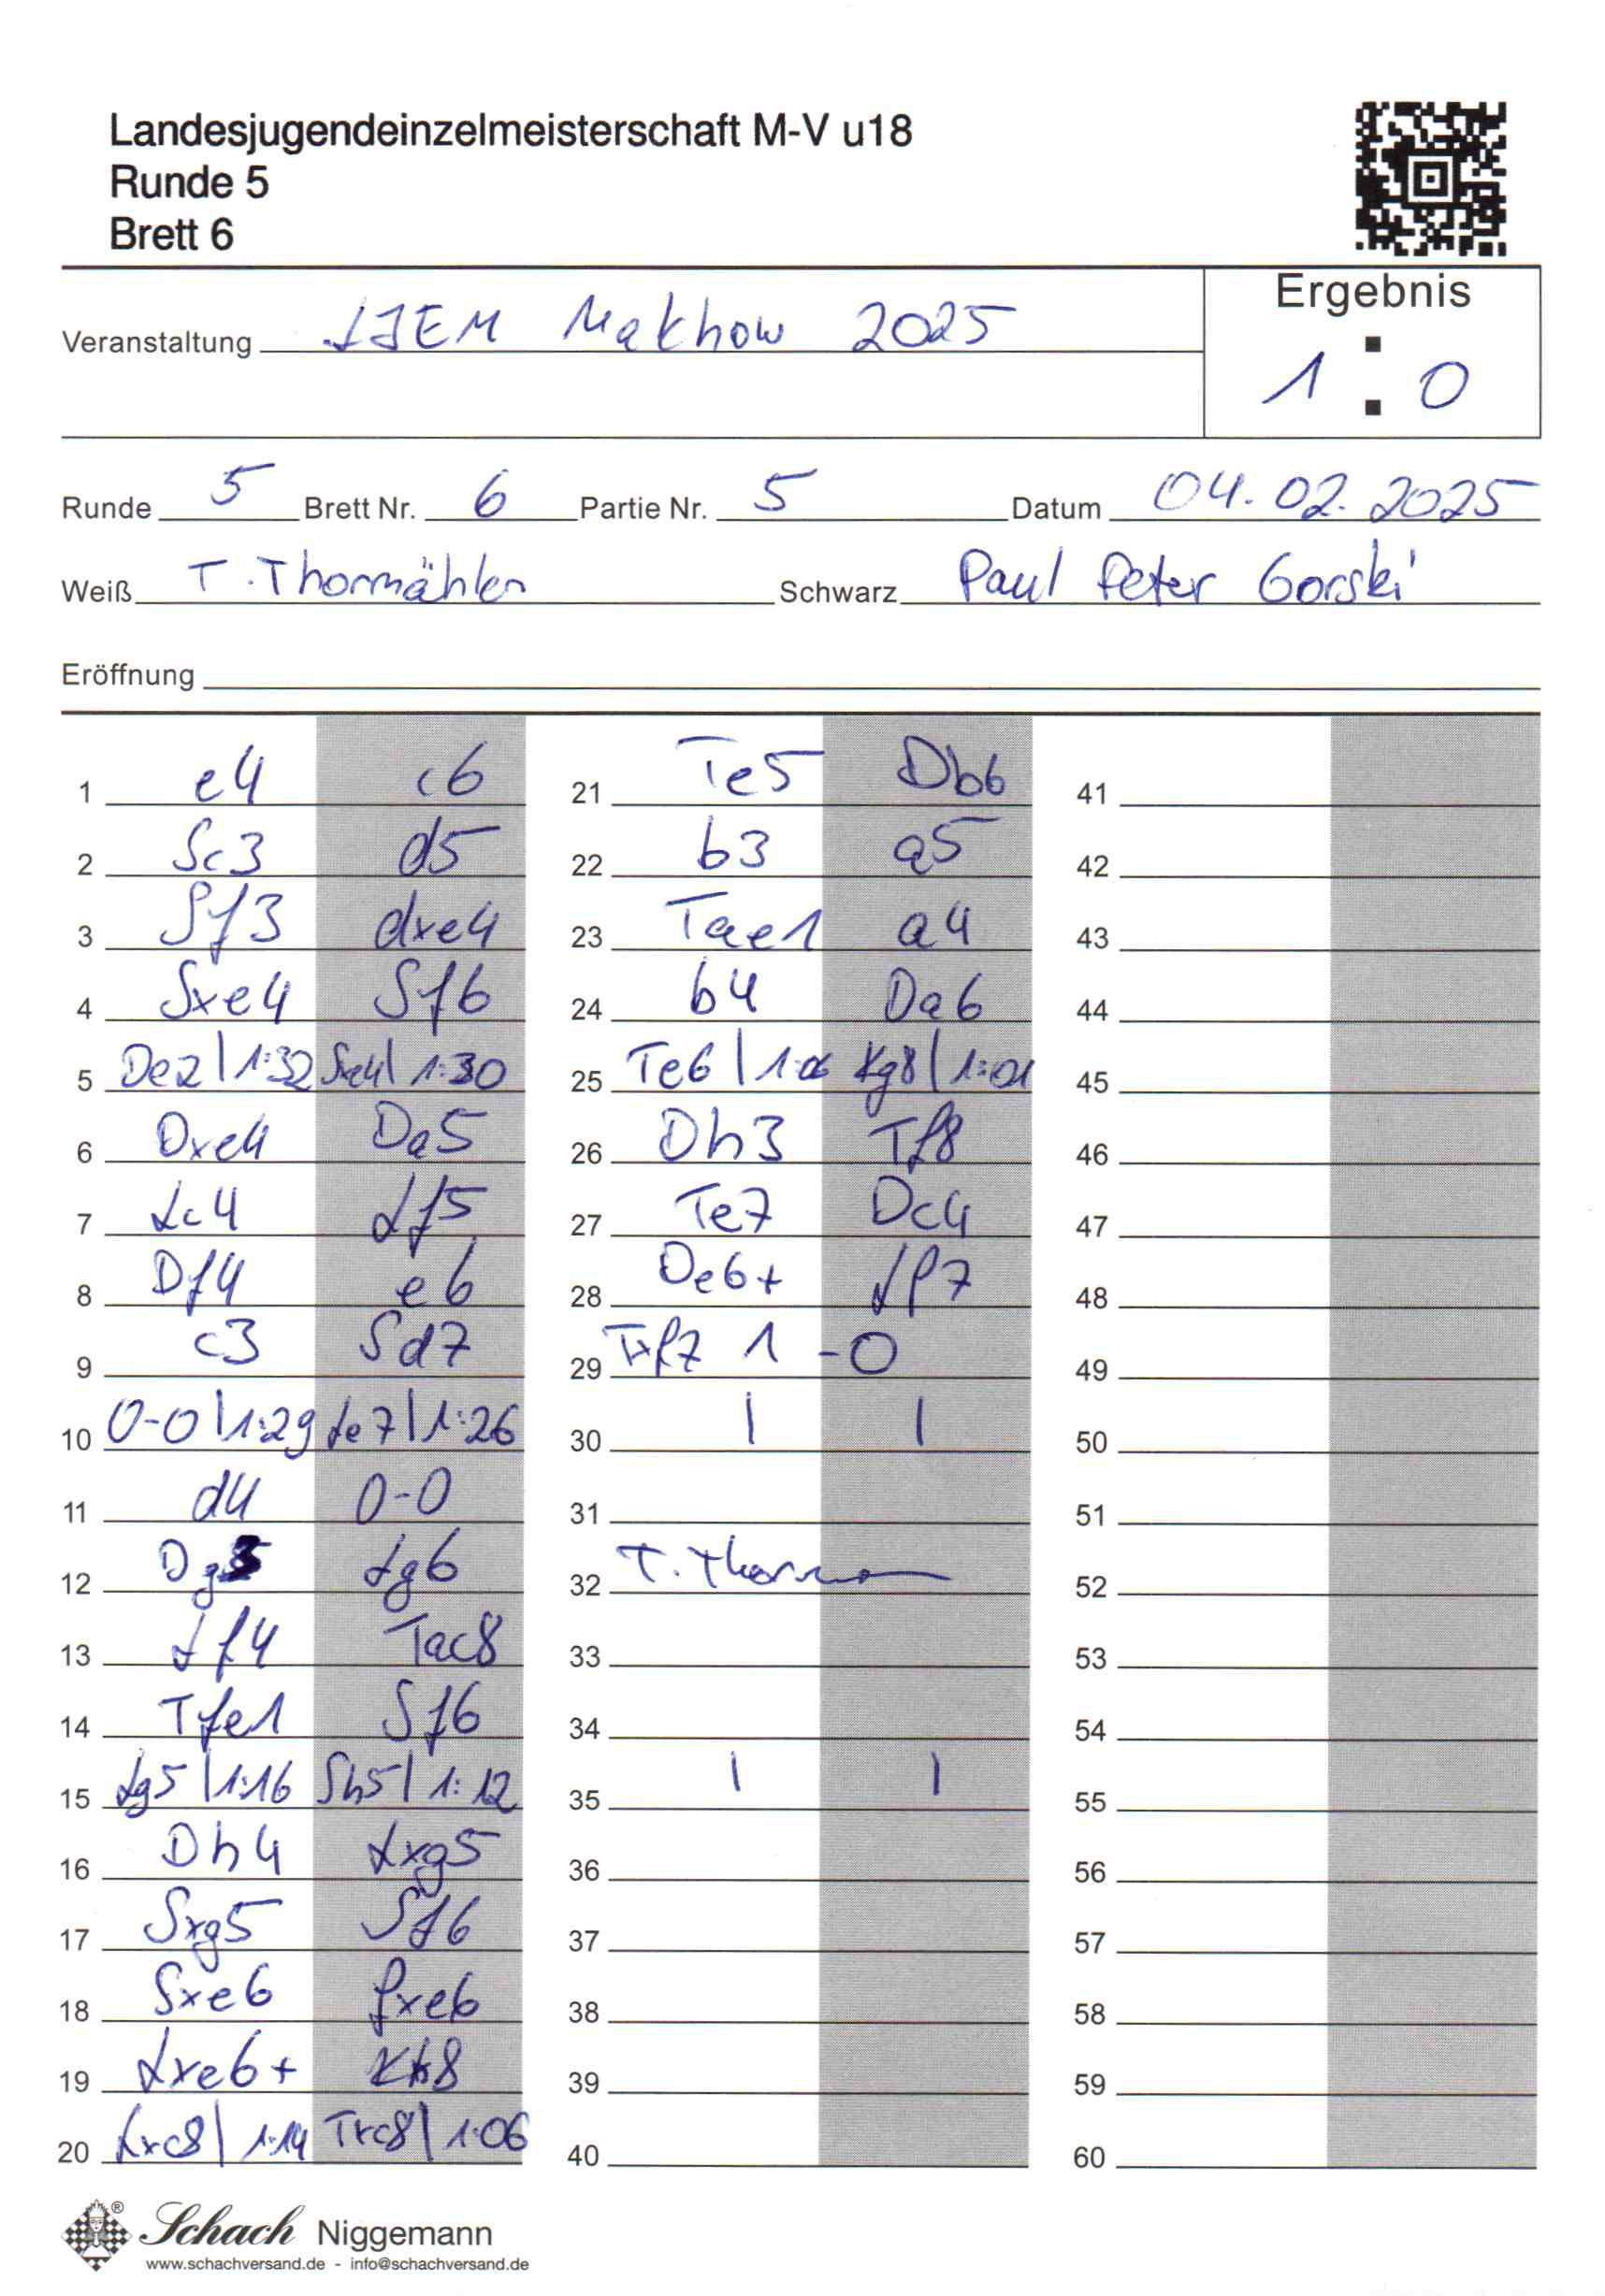 Landesjugendeinzelmeisterschaft M-V u18
Runde 5
Brett 6
Ergebnis
Veranstaltung LJEM Malchow 2025
1 : 0
Runde 5 Brett Nr. 6 Partie Nr. 5 Datum 04.02.2025
Weiß T. Thormählen Schwarz Paul Peter Gorski
Eröffnung
1 e4 c6
2 Sc3 d5
3 Sf3 dxe4
4 Sxe4 Sf6
5 De2 | 1:32 Sxe4 | 1:30
6 Dxe4 Da5
7 Lc4 Lf5
8 Df4 e6
9 c3 Sd7
10 0-0 | 1:29 Le7 | 1:26
11 d4 0-0
12 Dg3 Lg6
13 Lf4 Tac8
14 Tfe1 Sf6
15 Lg5 | 1:16 Sh5 | 1:12
16 Dh4 Lxg5
17 Sxg5 Sf6
18 Sxe6 fxe6
19 Lxe6+ Kh8
20 Lxc8 | 1:14 Txc8 | 1:06
21 Te5 Db6
22 b3 a5
23 Tae1 a4
24 b4 Da6
25 Te6 | 1:06 Kg8 | 1:01
26 Dh3 Tf8
27 Te7 Dc4
28 De6+ Lf7
29 Txf7 1-0
30 | |
31
32 T. Thorm
33
34
35 | |
36
37
38
39
40
41
42
43
44
45
46
47
48
49
50
51
52
53
54
55
56
57
58
59
60
® Schach Niggemann
www.schachversand.de - info@schachversand.de